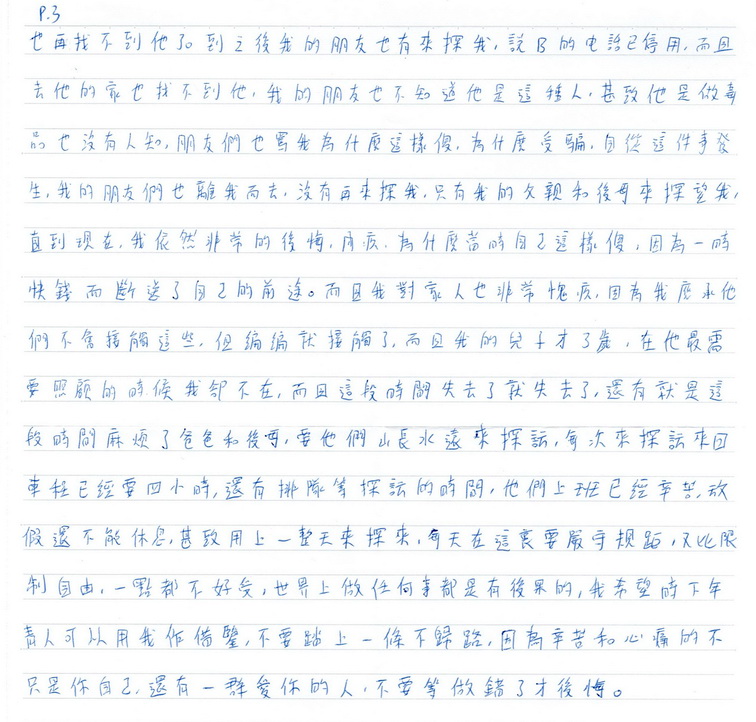 P.3
也再找不到他了。到之後我的朋友也有來探我，説B的电話已停用，而且
去他的家也找不到他，我的朋友也不知道他是這種人，甚致他是做毒
品也没有人知，朋友們也罵我為什麼這樣傻，為什麼受騙，自從這件事發
生，我的朋友們也離我而去，没有再來探我，只有我的父親和後母來探望我，
直到現在，我依然非常的後悔，内疚，為什麼當時自己這樣傻，因為一時
快錢而斷送了自己的前途。而且我對家人也非常愧疚，因為我應承他
們不會接觸這些，但编编就接觸了，而且我的兒子才3歲，在他最需
要照顧的時候我却不在，而且這段時間失去了就失去了，還有就是這
段時間麻烦了爸爸和後母，要他們山長水遠來探訪，每次來探訪來回
車程已經要四小時，還有排隊等探訪的時間，他們上班已經辛苦，放
假還不能休息，甚致用上一整天來探來，每天在這裏要嚴守規距，又比限
制自由，一點都不好受，世界上做任何事都是有後果的，我希望時下年
青人可以用我作借鑒，不要踏上一條不歸路，因為辛苦和心痛的不
只是你自己，還有一群愛你的人，不要等做錯了才後悔。